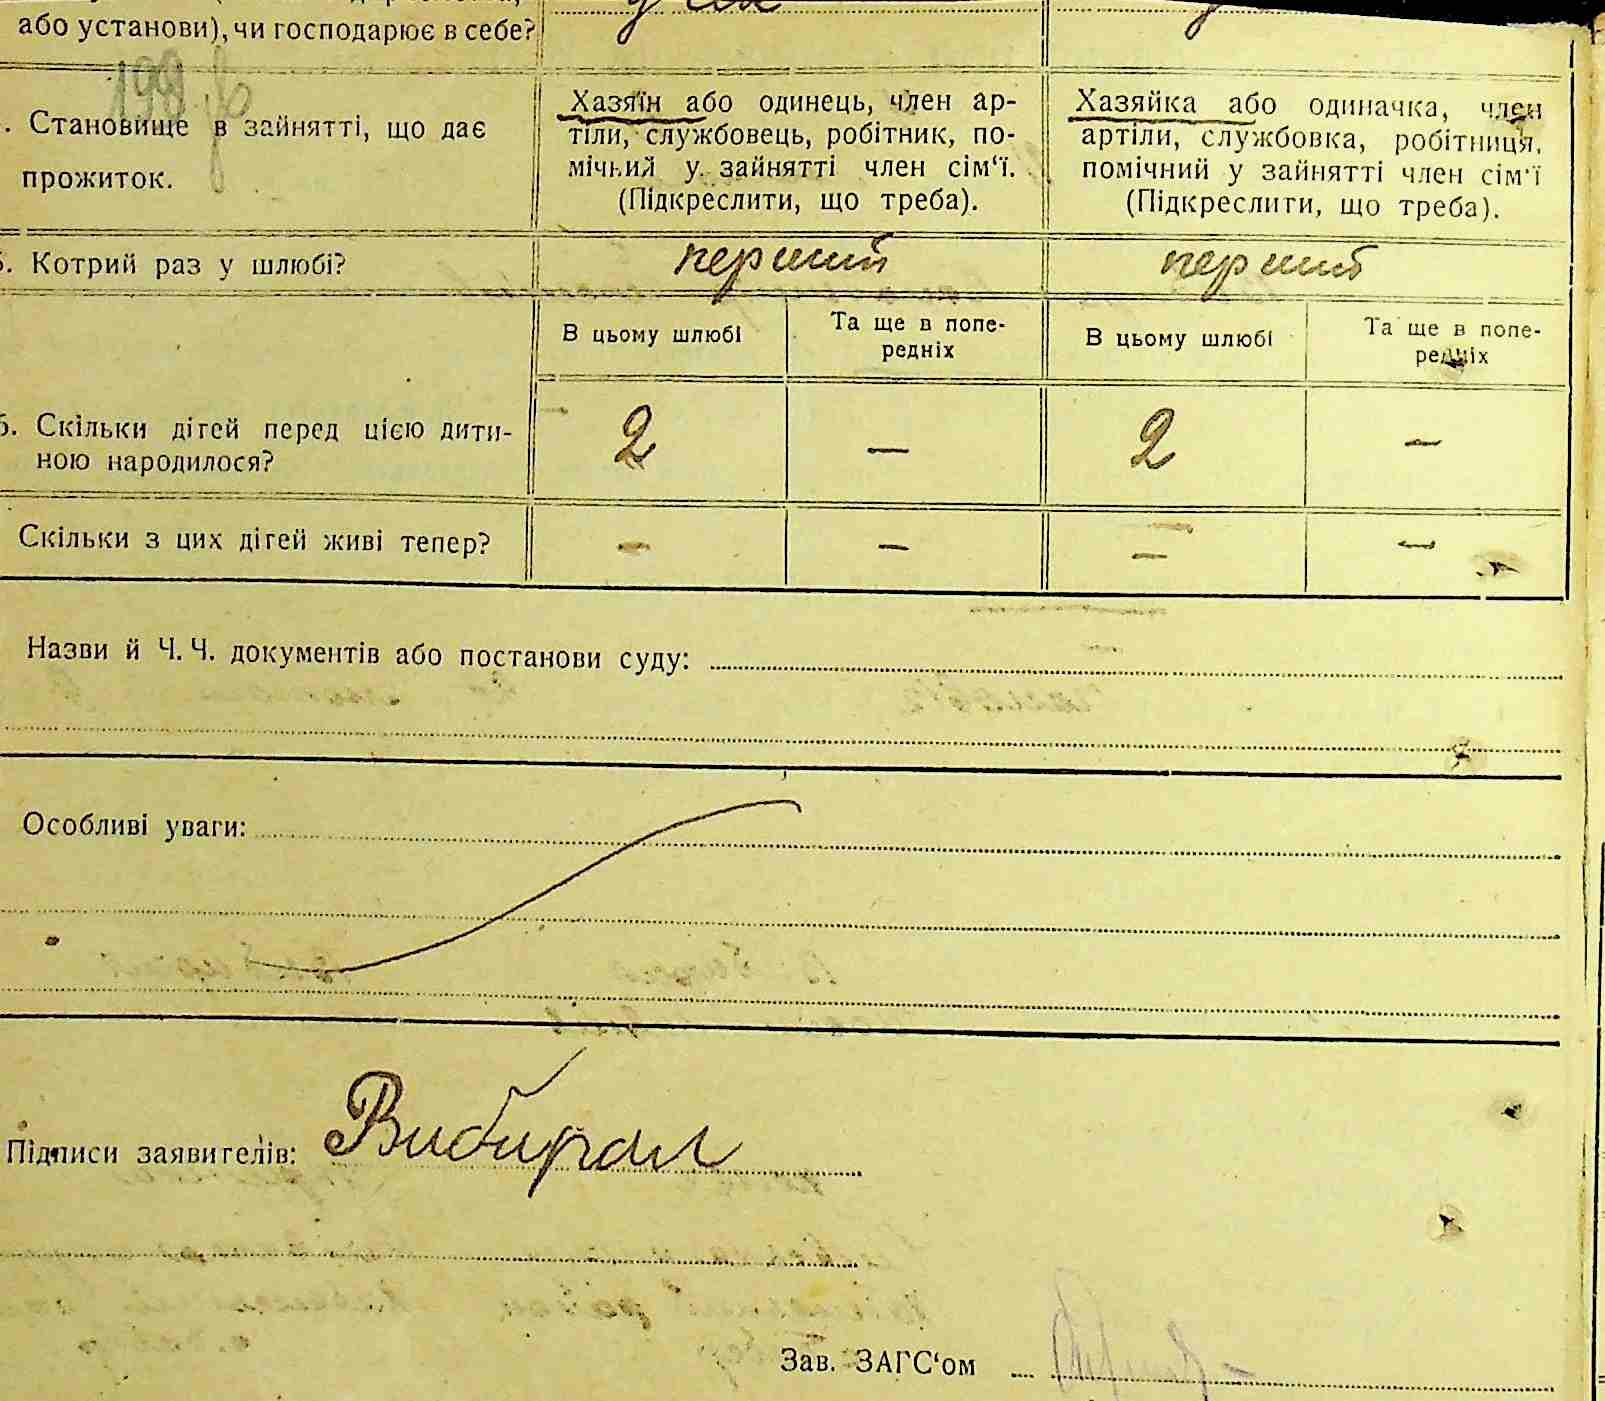 або установи), чи господарює в себе?
. Становище в зайнятті, що дає
прожиток.
Хазяїн або одинець, член ар-
тіли, службовець, робітник, по-
мічний у зайнятті член сім‘ї.
(Підкреслити, що треба).
Хазяйка або одиначка, член
артіли, службовка, робітниця,
помічний у зайнятті член сім‘ї
(Підкреслити, що треба).
5. Котрий раз у шлюбі?
перший
перший
В цьому шлюбі
Та ще в попе-
редніх
В цьому шлюбі
Та ще в попе-
редніх
6. Скільки дітей перед цією дити-
ною народилося?
2
—
2
—
Скільки з цих дітей живі тепер?
—
—
—
—
Назви й Ч. Ч. документів або постанови суду:
Особливі уваги:
Підписи заявителів:
Зав. ЗАГС‘ом